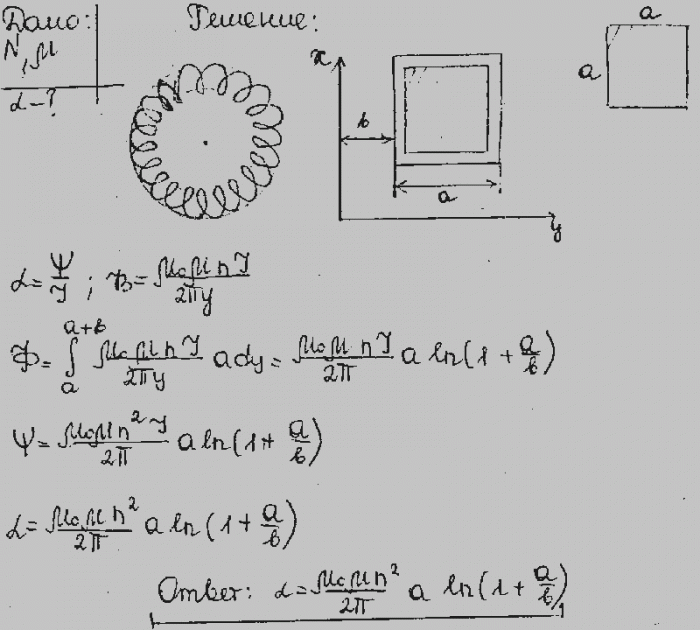 Дано: Решение:
N, μ
L-?
x
b
a
y
a
a
L = Ψ/I ; B = μ₀μnI/2πy
Φ = ∫ₐᵃ⁺ᵇ μ₀μnI/2πy ady = μ₀μnI/2π a ln(1 + a/b)
Ψ = μ₀μn²I/2π a ln(1 + a/b)
L = μ₀μn²/2π a ln(1 + a/b)
Ответ: L = μ₀μn²/2π a ln(1 + a/b)